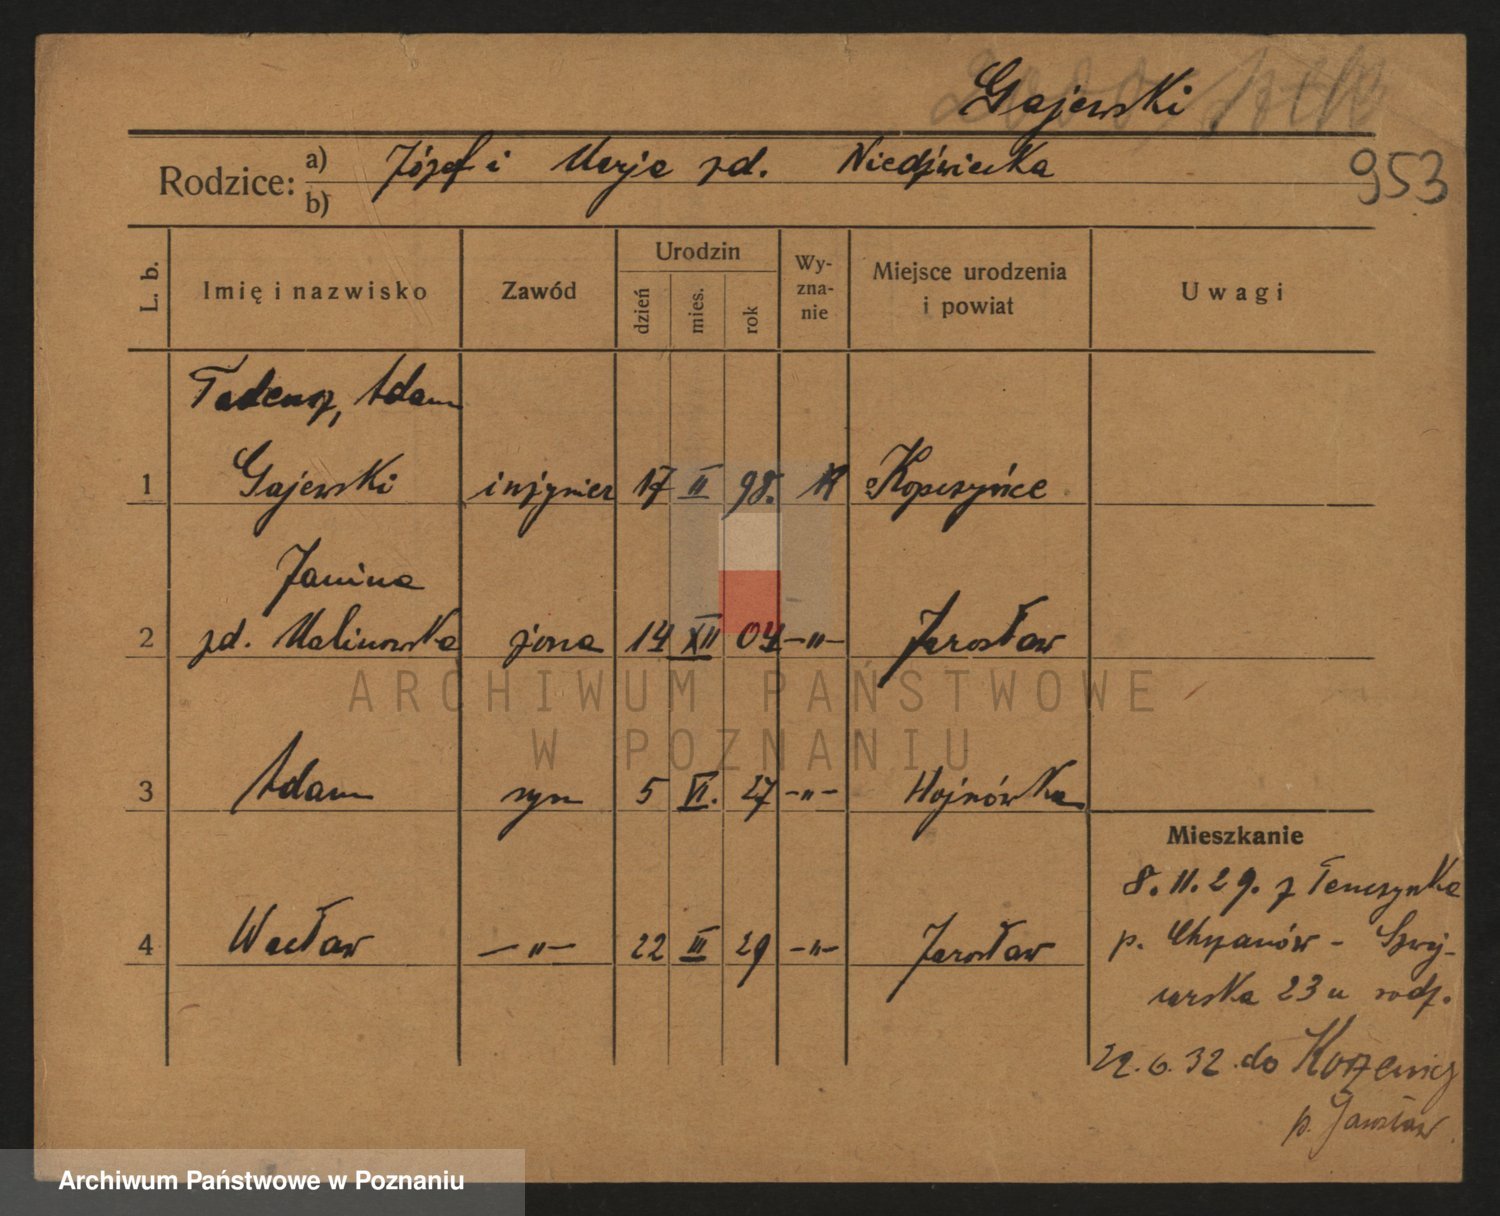 Gajewski
953
Rodzice: a) Józef i Marja zd. Niedźwiecka
b)
L. b. Imię i nazwisko Zawód Urodzin dzień mies. rok Wy-zna-nie Miejsce urodzenia i powiat Uwagi
Tadeusz, Adam
1 Gajewski inżynier 17 II 98. Kopczyńce
Janina
2 zd. Malinowska żona 14 XII 04 -„- Jarosław
ARCHIWUM PAŃSTWOWE
W POZNANIU
3 Adam syn 5 VI. 27 -„- Hajnówka
Mieszkanie
8.11.29. z Tenczynka
4 Wacław -„- 22 III 29 -„- Jarosław
p. Chrzanów - Szwaj-
carska 23 u rodz.
22.6.32. do
p. Jarosław
Archiwum Państwowe w Poznaniu